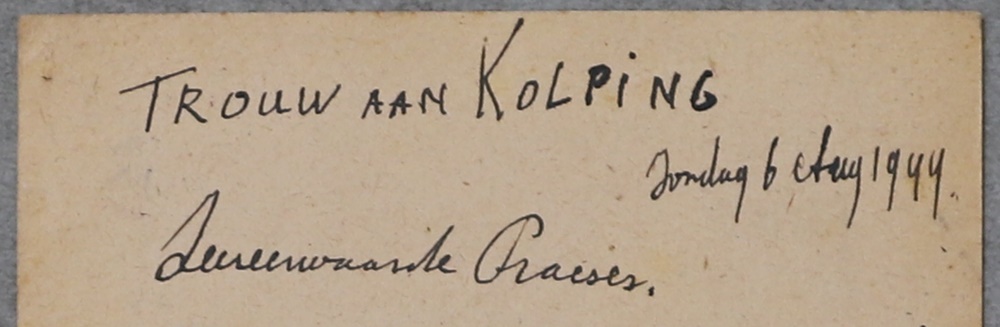 TROUW AAN KOLPiNG
Zondag 6 Aug 1944.
Zeereerwaarde Praeses.